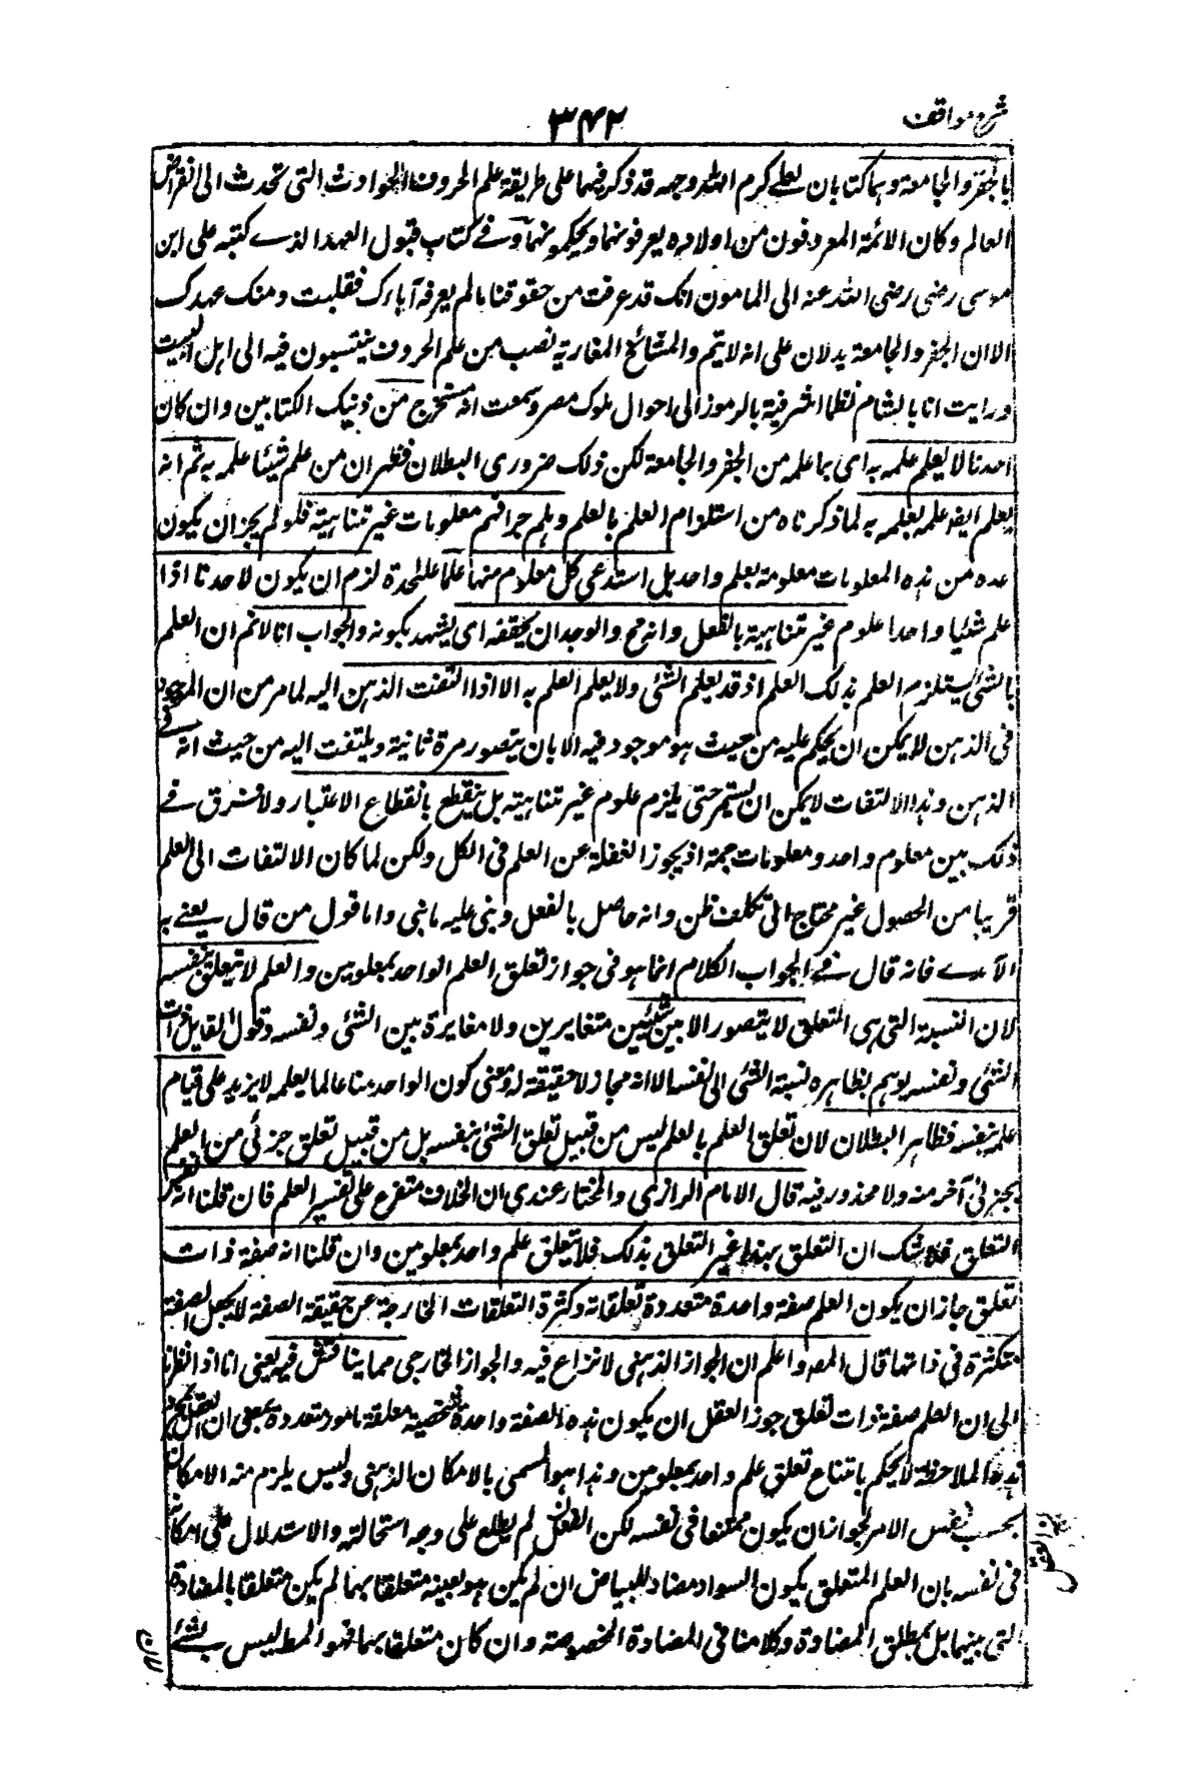 شرح مواقف
۳۴۲
بالجفر والجامعة وہما کتابان لعلی کرم اللہ وجہہ قد ذکر فیہما علی طریقة علم الحروف الحوادث التی تحدث الی انقراض
العالم وکان الائمة المعروفون من اولادہ یعرفونہما ویحکمون بہما وفے کتاب قبول العہد الذے کتبہ علی ابن
موسی رضی رضی اللہ عنہ الی المامون انک قد عرفت من حقوقنا مالم یعرفہ آباءک فقلبت منک عہدک
الا ان الجفر والجامعة یدلان علی انہ لا یتم والمشائخ المغاربة نصیب من علم الحروف ینتسبون فیہ الی اہل البیت
ورایت انا بالشام نظما اشیر فیہ بالرموز الی احوال ملوک مصر وسمعت انہ مستخرج من ذینک الکتابین وان کان
احدنا لا یعلم علمہ بہ ای بما علمہ من الجفر والجامعة لکن ذلک ضروری البطلان فظہر ان من علم شیئا علمہ بہ ثم انہ
یعلم ایضا علمہ بعلمہ بہ لما ذکرناہ من استلزام العلم بالعلم وہلم جرا فثم معلومات غیر متناہیة فلو لم یجز ان یکون
عدہ من ہذہ المعلومات معلومة بعلم واحد بل استدعی کل معلوم منہا علما علحدة لزم ان یکون لاحدنا اذا
علم شیئا واحدا علوم غیر متناہیة بالفعل وانہ مح والوجدان یحققہ ای یشہد بکونہ والجواب انا لا نم ان العلم
بالشئ یستلزم العلم بذلک العلم اذ قد یعلم الشئ ولا یعلم العلم بہ الا اذا التفت الذہن الیہ لما مر من ان الموجود
فی الذہن لا یمکن ان یحکم علیہ من حیث ہو موجود فیہ الا بان یتصور مرة ثانیة ویلتفت الیہ من حیث انہ فے
الذہن وہذا الالتفات لا یمکن ان یستمر حتی یلزم علوم غیر متناہیة بل ینقطع بانقطاع الاعتبار ولا فرق فے
ذلک بین معلوم واحد ومعلومات جمة اذ یجوز الغفلة عن العلم فی الکل ولکن لما کان الالتفات الی العلم
قریبا من الحصول غیر محتاج الی تکلف ظن وانہ حاصل بالفعل وبنی علیہ ما بنی واما قول من قال یعنے بہ
الآمدے فانہ قال فے الجواب الکلام انما ہو فی جواز تعلق العلم الواحد بمعلومین والعلم لا یتعلق بنفسہ
لان النسبة التی ہی التعلق لا یتصور الا بین شیئین متغایرین ولا مغایرة بین الشئ ونفسہ وقول القایل ذات
الشئ ونفسہ یوہم بظاہرہ نسبة الشئ الی نفسہ الا انہ مجاز لا حقیقة لہ ومعنی کون الواحد منا عالما بعلمہ لا یزید علی قیام
علمہ بنفسہ فظاہر البطلان لان تعلق العلم بالعلم لیس من قبیل تعلق الشئ بنفسہ بل من قبیل تعلق جزئی من العلم
بجزئی آخر منہ ولا محذور فیہ قال الامام الرازی والمختار عندی ان الخلاف متفرع علی تفسیر العلم فان قلنا انہ نفس
التعلق فلا شک ان التعلق بہذا غیر التعلق بذلک فلا یتعلق علم واحد بمعلومین وان قلنا انہ صفة ذات
تعلق جاز ان یکون العلم صفة واحدة متعددة تعلقاتہ وکثرة التعلقات الخارجة عن حقیقة الصفة لا یجعل الصفة
متکثرة فی ذاتہا قال المصہ واعلم ان الجواز الذہنی لا نزاع فیہ والجواز الخارجی مما یناقش فیہ یعنی انا اذا نظرنا
الی ان العلم صفة ذات تعلق جوز العقل ان یکون ہذہ الصفة واحدة شخصیة متعلقة بامور متعددة بمعنی ان العقل بمجرد
ہذہ الملاحظة لا یحکم بامتناع تعلق علم واحد بمعلومین وہذا ہو المسمی بالامکان الذہنی ولیس یلزم منہ الامکان
بحسب نفس الامر لجواز ان یکون ممتنعا فی نفسہ لکن العقل لم یطلع علی وجہ استحالتہ والاستدلال علی امکانہ
فی نفسہ بان العلم المتعلق بکون السواد مضادا للبیاض ان لم یکن ہو بعینہ متعلقا بہما لم یکن متعلقا بالمضادة
التی بینہما بل بمطلق المضادة وکلامنا فی المضادة المخصوصة وان کان متعلقا بہما فہو المط لیس بشئے
لان